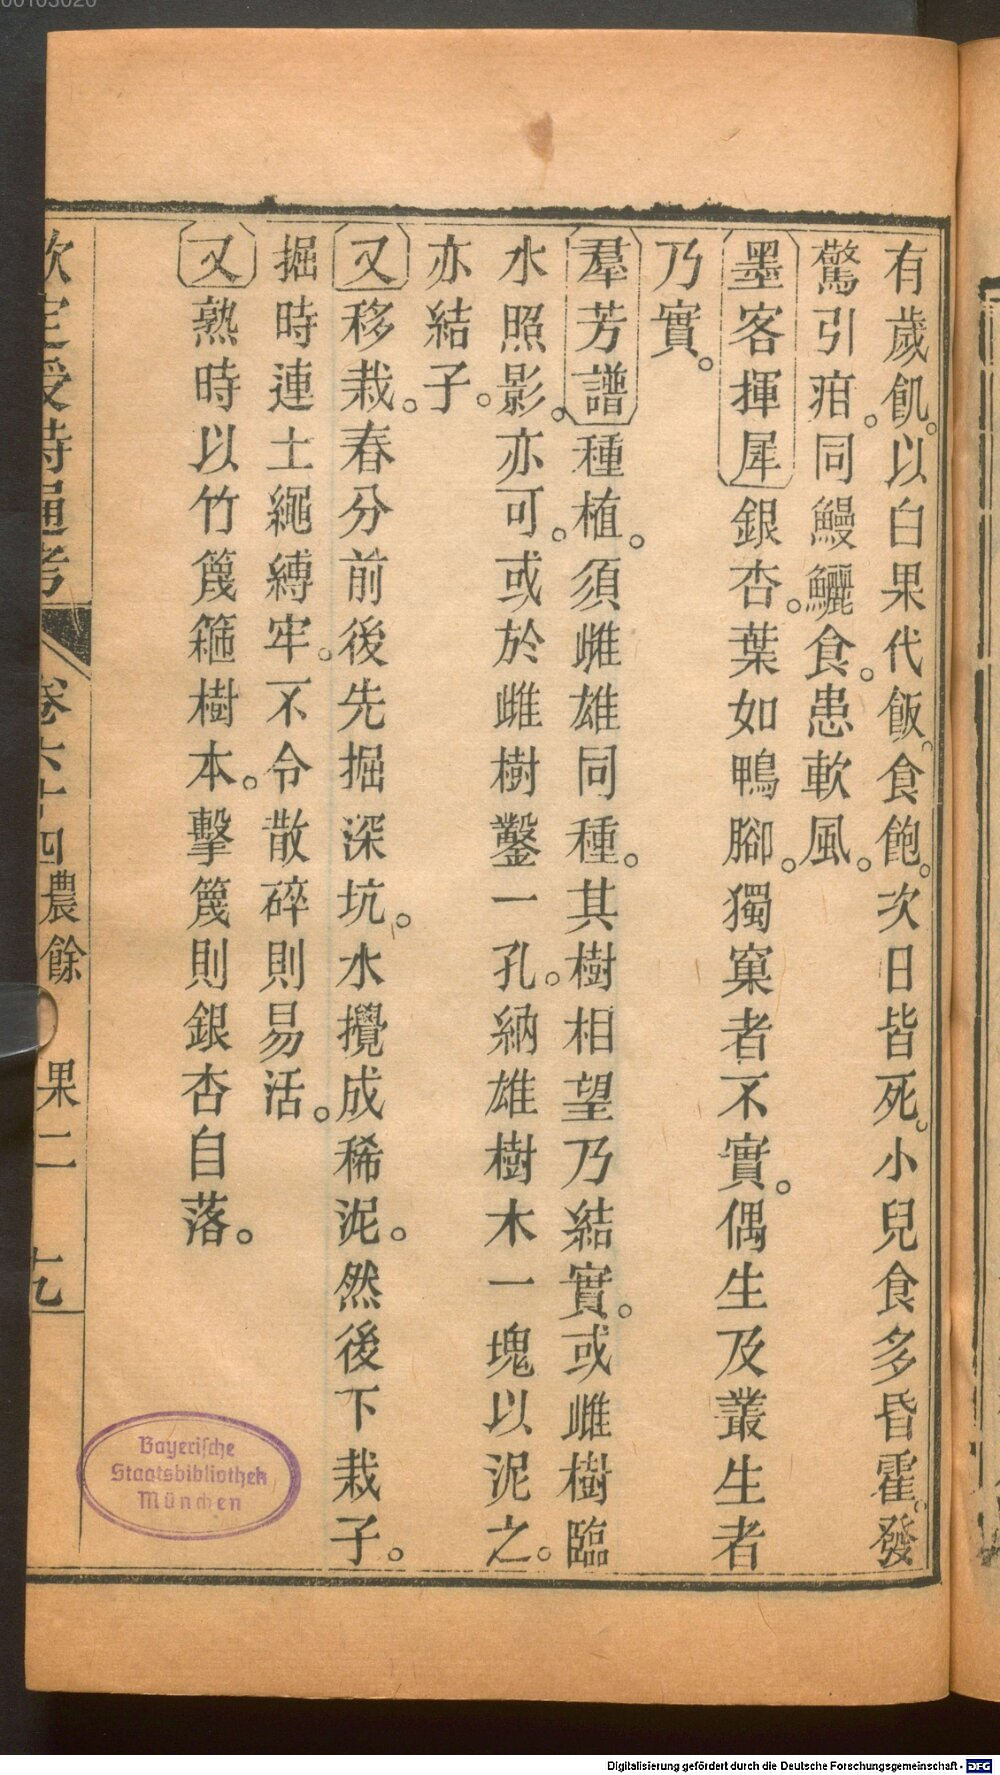 有歲飢。以白果代飯。食飽。次日皆死。小兒食多昏霍。發
驚引疳。同鰻鱺食。患軟風。
墨客揮犀銀杏。葉如鴨腳。獨窠者不實。偶生及叢生者
乃實。
羣芳譜種植。須雌雄同種。其樹相望乃結實。或雌樹臨
水照影。亦可。或於雌樹鑿一孔。納雄樹木一塊以泥之。
亦結子。
又移栽。春分前後先掘深坑。水攪成稀泥。然後下栽子。
掘時連土繩縛牢。不令散碎則易活。
又熟時以竹篾箍樹本。擊篾則銀杏自落。
欽定授時通考 卷六十四農餘 果二 九
Bayerische
Staatsbibliothek
München
Digitalisierung gefördert durch die Deutsche Forschungsgemeinschaft - DFG